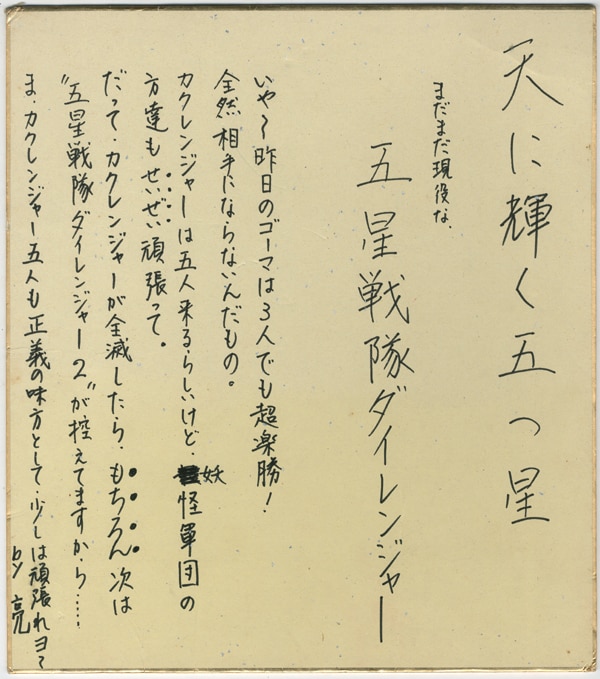 天に輝く五つ星
まだまだ現役な、
五星戦隊ダイレンジャー
いや〜昨日のゴーマは3人でも超楽勝！
全然相手にならないんだもの。
カクレンジャーは五人来るらしいけど、妖怪軍団の
方達もせいぜい頑張って。
だって、カクレンジャーが全滅したら、もちろん次は
"五星戦隊ダイレンジャー2"が控えてますから……
ま、カクレンジャー五人も正義の味方として、少しは頑張れヨ〜
by 亮